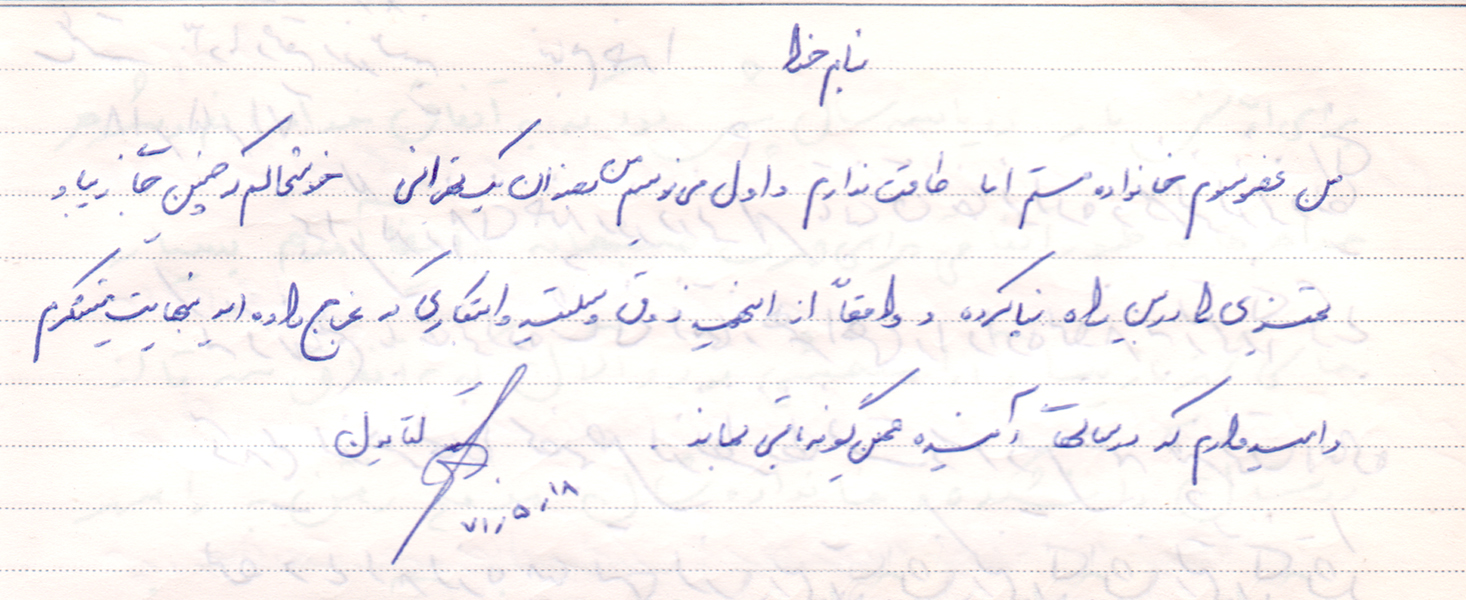 بنام خدا
من عضو سوم خانواده هستم اما طاقت ندارم و اول می نویسم من بعد از آن خوشحالم که چنین جای زیبا و
را درین راه بنا کرده و واقعاً از اینهمه ذوق و سلیقه و ابتکاری که بخرج داده اید بینهایت متشکرم
و امیدوارم که در سالهای آینده همین گونه باقی بماند.
۷۱/۵/۱۸